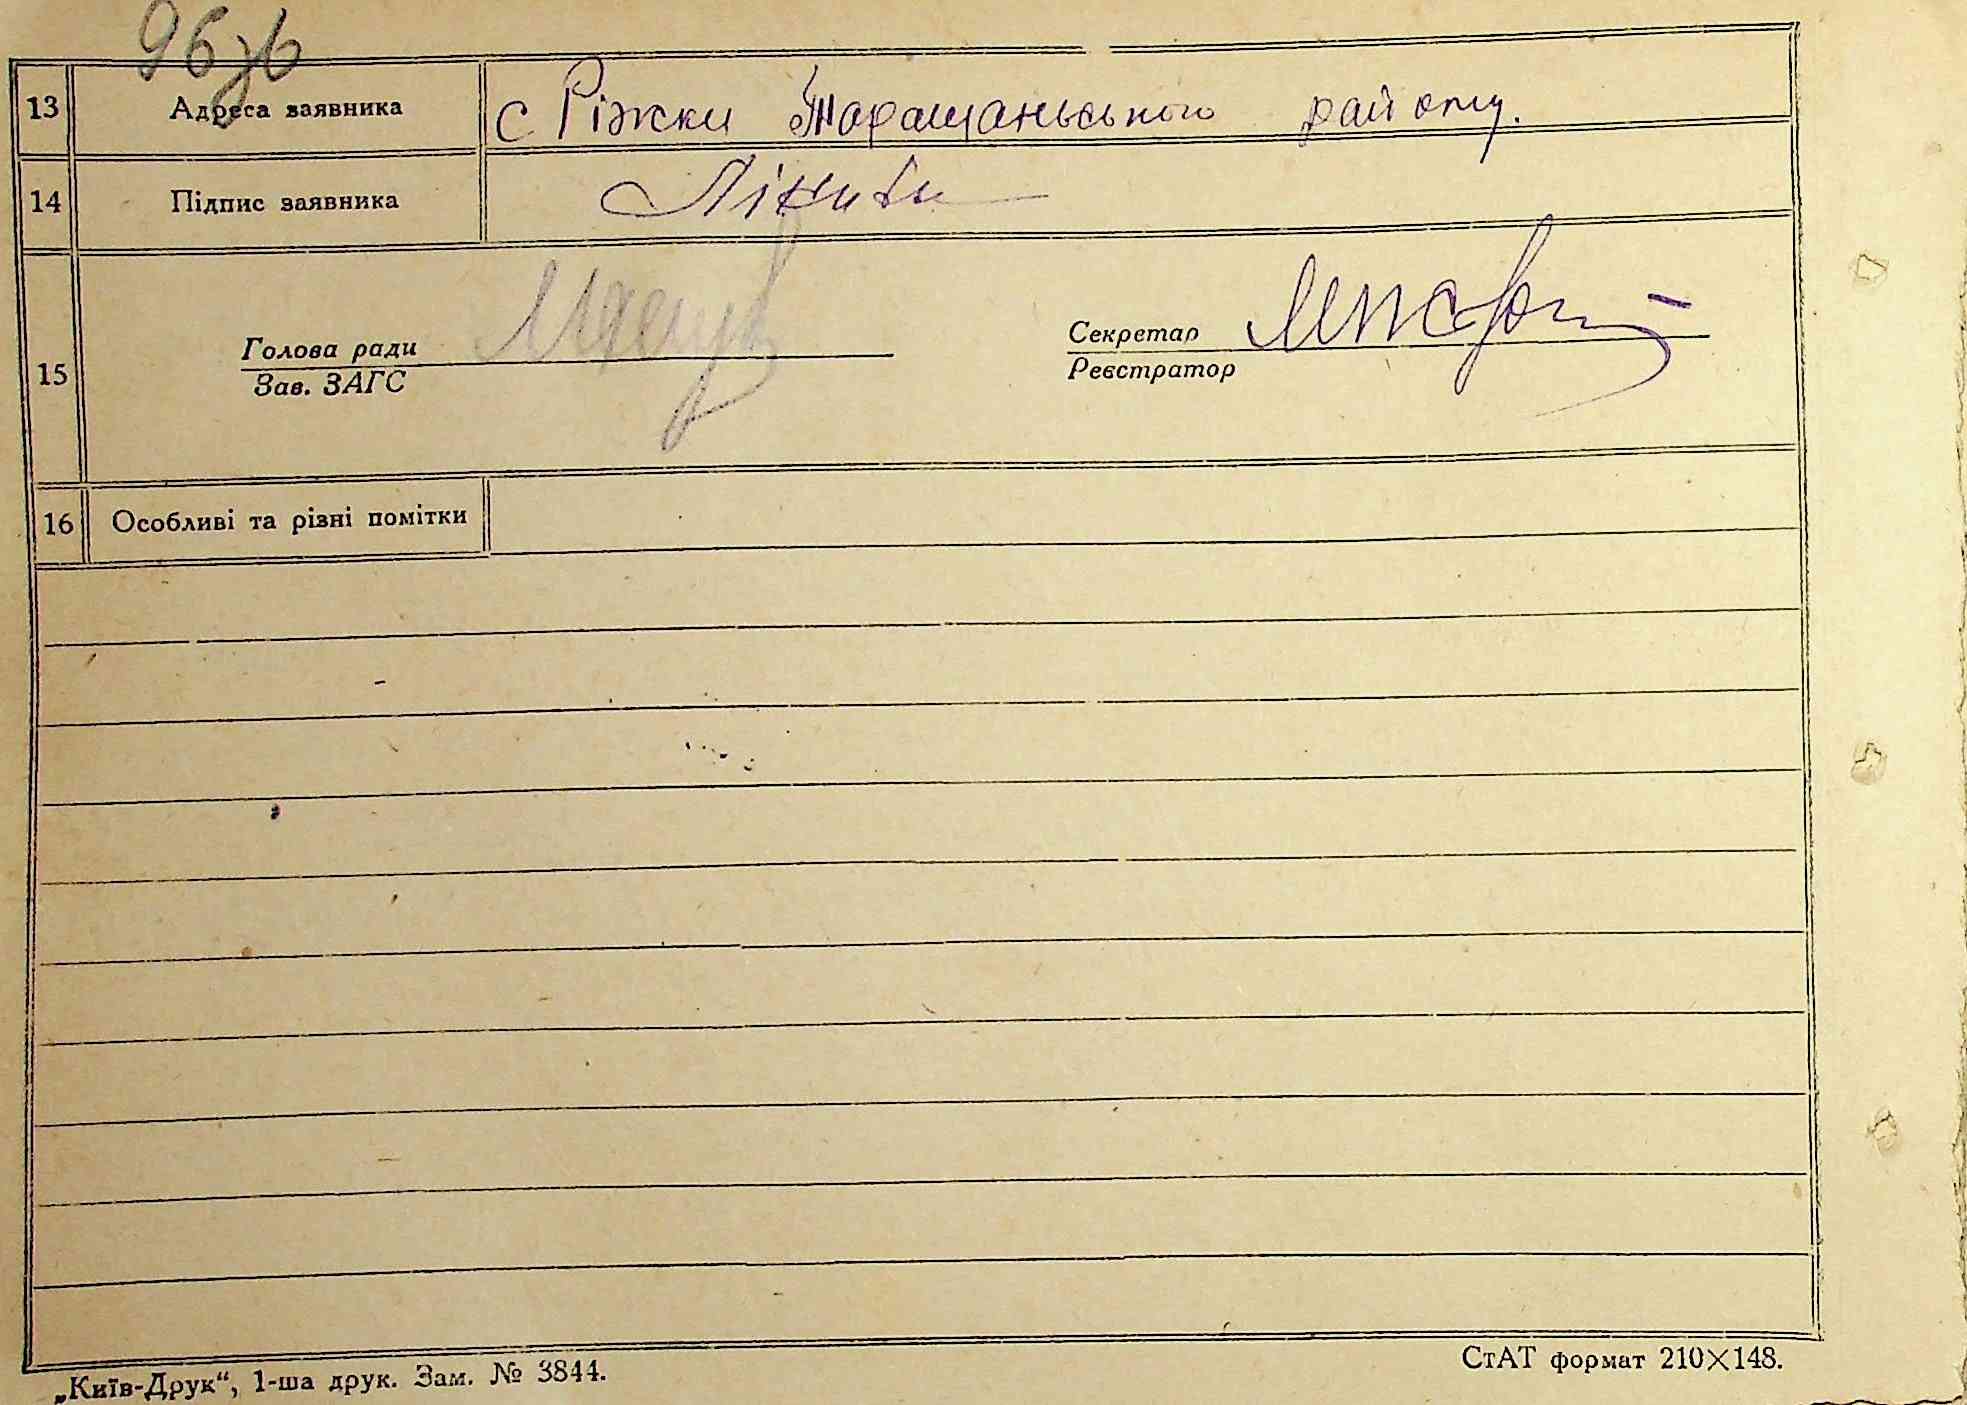 96 зв
13 Адреса заявника с Ріжки Таращаньського району.
14 Підпис заявника
15 Голова ради Секретар
Зав. ЗАГС Реєстратор
16 Особливі та різні помітки
„Київ-Друк“, 1-ша друк. Зам. № 3844. СтАТ формат 210×148.